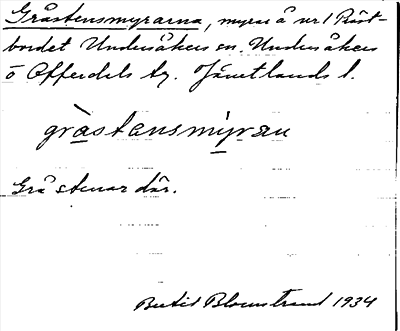 Gråstensmyrarna, myrar å nr 1 Präst-
bordet Undersåkers sn. Undersåkers
o Offerdals tg. Jämtlands l.
gràstensmýran
Grå stenar där.
Bertil Blomstrand 1934